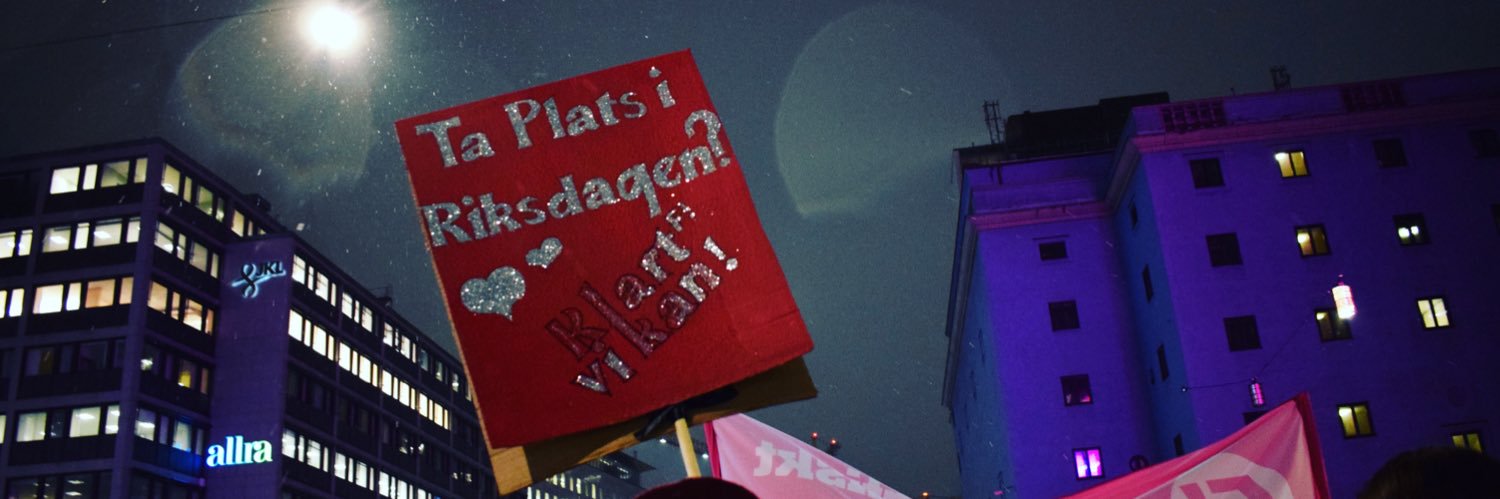 Ta Plats i
Riksdagen?
Klart FI
vi kan!
JKL
allra